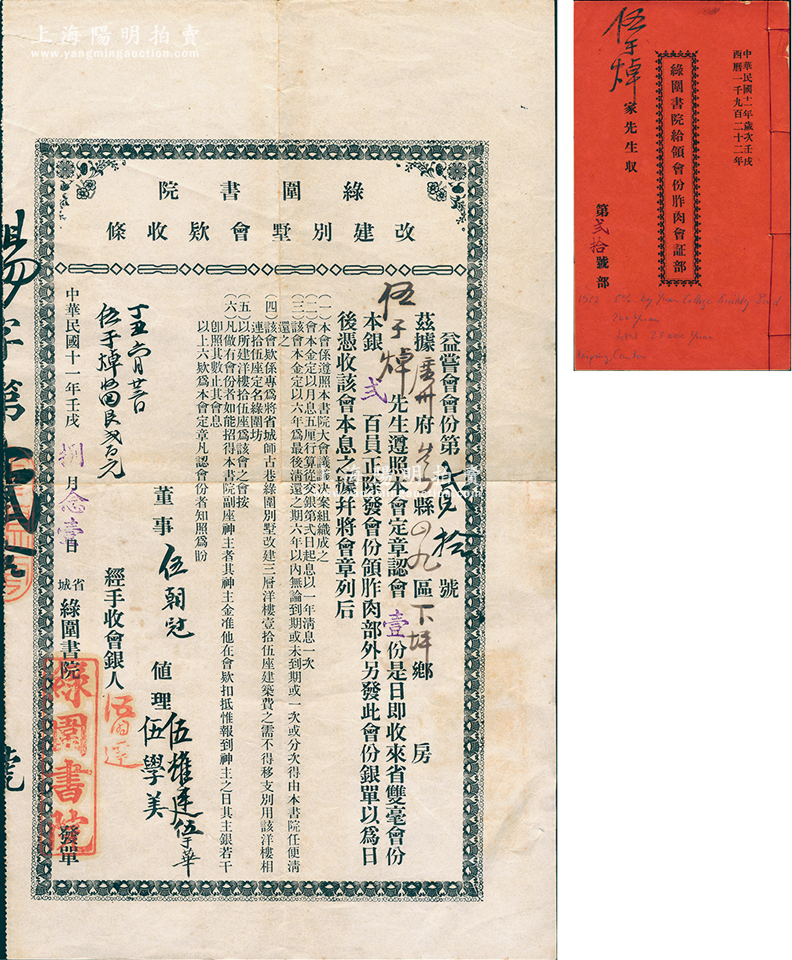 上海陽明拍賣
www.yangmingauction.com
綠圍書院
改建別墅會欵收條
益嘗會會份第貳拾號
茲據廣州府 縣四九區下坪鄉 房
伍于焯先生遵照本會定章認會壹份是日即收來省雙毫會份
本銀弍百員正除發會份領胙肉部外另發此會份銀單以為日
後憑收該會本息之據幷將會章列后
(一)本會係遵照本書院大會議議決案組織成之
(二)會本金定以月息五厘行算從交銀第弍日起息以一年清息一次
(三)該會本金定以六年為最後清還之期六年以內無論到期或未到期或一次或分次得由本書院任便清
還之
(四)該會欵係專為將省城師古巷綠圍別墅改建三層洋樓壹拾伍座建築費之需不得移支別用該洋樓相
連拾伍座定名綠圍坊
(五)以所建洋樓拾伍座為該會之會按
(六)凡做有會份者如能招得本書院副座神主者其神主金准他在會欵扣抵惟報到神主之日其主銀若干
卽照其數止其會息
以上六欵為本會定章凡認會份者知照為盼
董事 伍朝 值理 伍耀廷 伍于華
伍學美
經手收會銀人
丁丑 月廿 日
伍于焯
中華民國十一年壬戌捌月念壹日 省城綠圍書院發單
綠圍書院
中華民國十一年歲次壬戌
西曆一千九百二十二年
綠圍書院給領會份胙肉會証部
伍于焯家先生収
第弍拾號部
1922